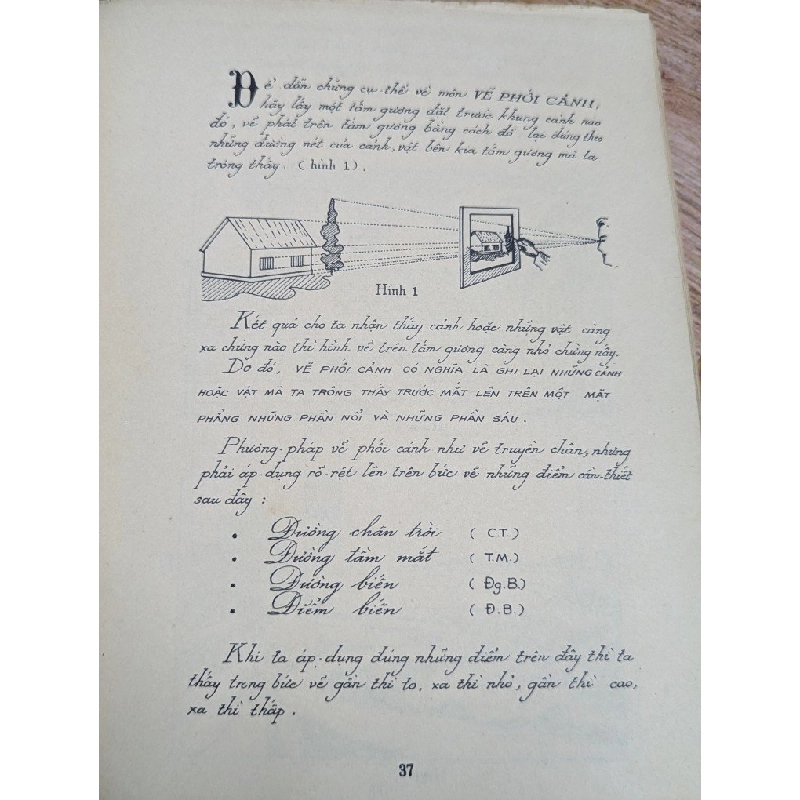 Để dẫn chứng cụ-thể về môn VẼ PHỐI CẢNH,
hãy lấy một tấm gương đặt trước khung cảnh nào
đó, vẽ phát trên tấm gương bằng cách đồ lại đúng theo
những đường nét của cảnh, vật bên kia tấm gương mà ta
trông thấy. (hình 1).
Hình 1
Kết quả cho ta nhận thấy cảnh hoặc những vật càng
xa chừng nào thì hình vẽ trên tấm gương càng nhỏ chừng nấy.
Do đó, VẼ PHỐI CẢNH CÓ NGHĨA LÀ GHI LẠI NHỮNG CẢNH
HOẶC VẬT MÀ TA TRÔNG THẤY TRƯỚC MẮT LÊN TRÊN MỘT MẶT
PHẲNG NHỮNG PHẦN NỔI VÀ NHỮNG PHẦN SÂU.
Phương-pháp vẽ phối cảnh như vẽ truyền chân, nhưng
phải áp-dụng rõ-rệt lên trên bức vẽ những điểm cần-thiết
sau đây :
• Đường chân trời ( C.T. )
• Đường tầm mắt ( T.M. )
• Đường biến ( Đg.B. )
• Điểm biến ( Đ.B )
Khi ta áp-dụng đúng những điểm trên đây thì ta
thấy trong bức vẽ gần thì to, xa thì nhỏ, gần thì cao,
xa thì thấp.
37